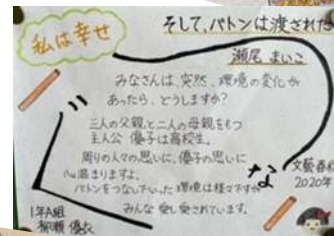 そして、バトンは渡された
私は幸せ
瀬尾 まいこ
みなさんは、突然、環境の変化が
あったら、どうしますか?
三人の父親と二人の母親をもつ
主人公 優子は高校生。
周りの人々の思いに、優子の思いに
心温まりますよ。
バトンをつないでいった環境は様々ですが
みんな 愛し愛されています。
文藝春秋
2020年
1年A組